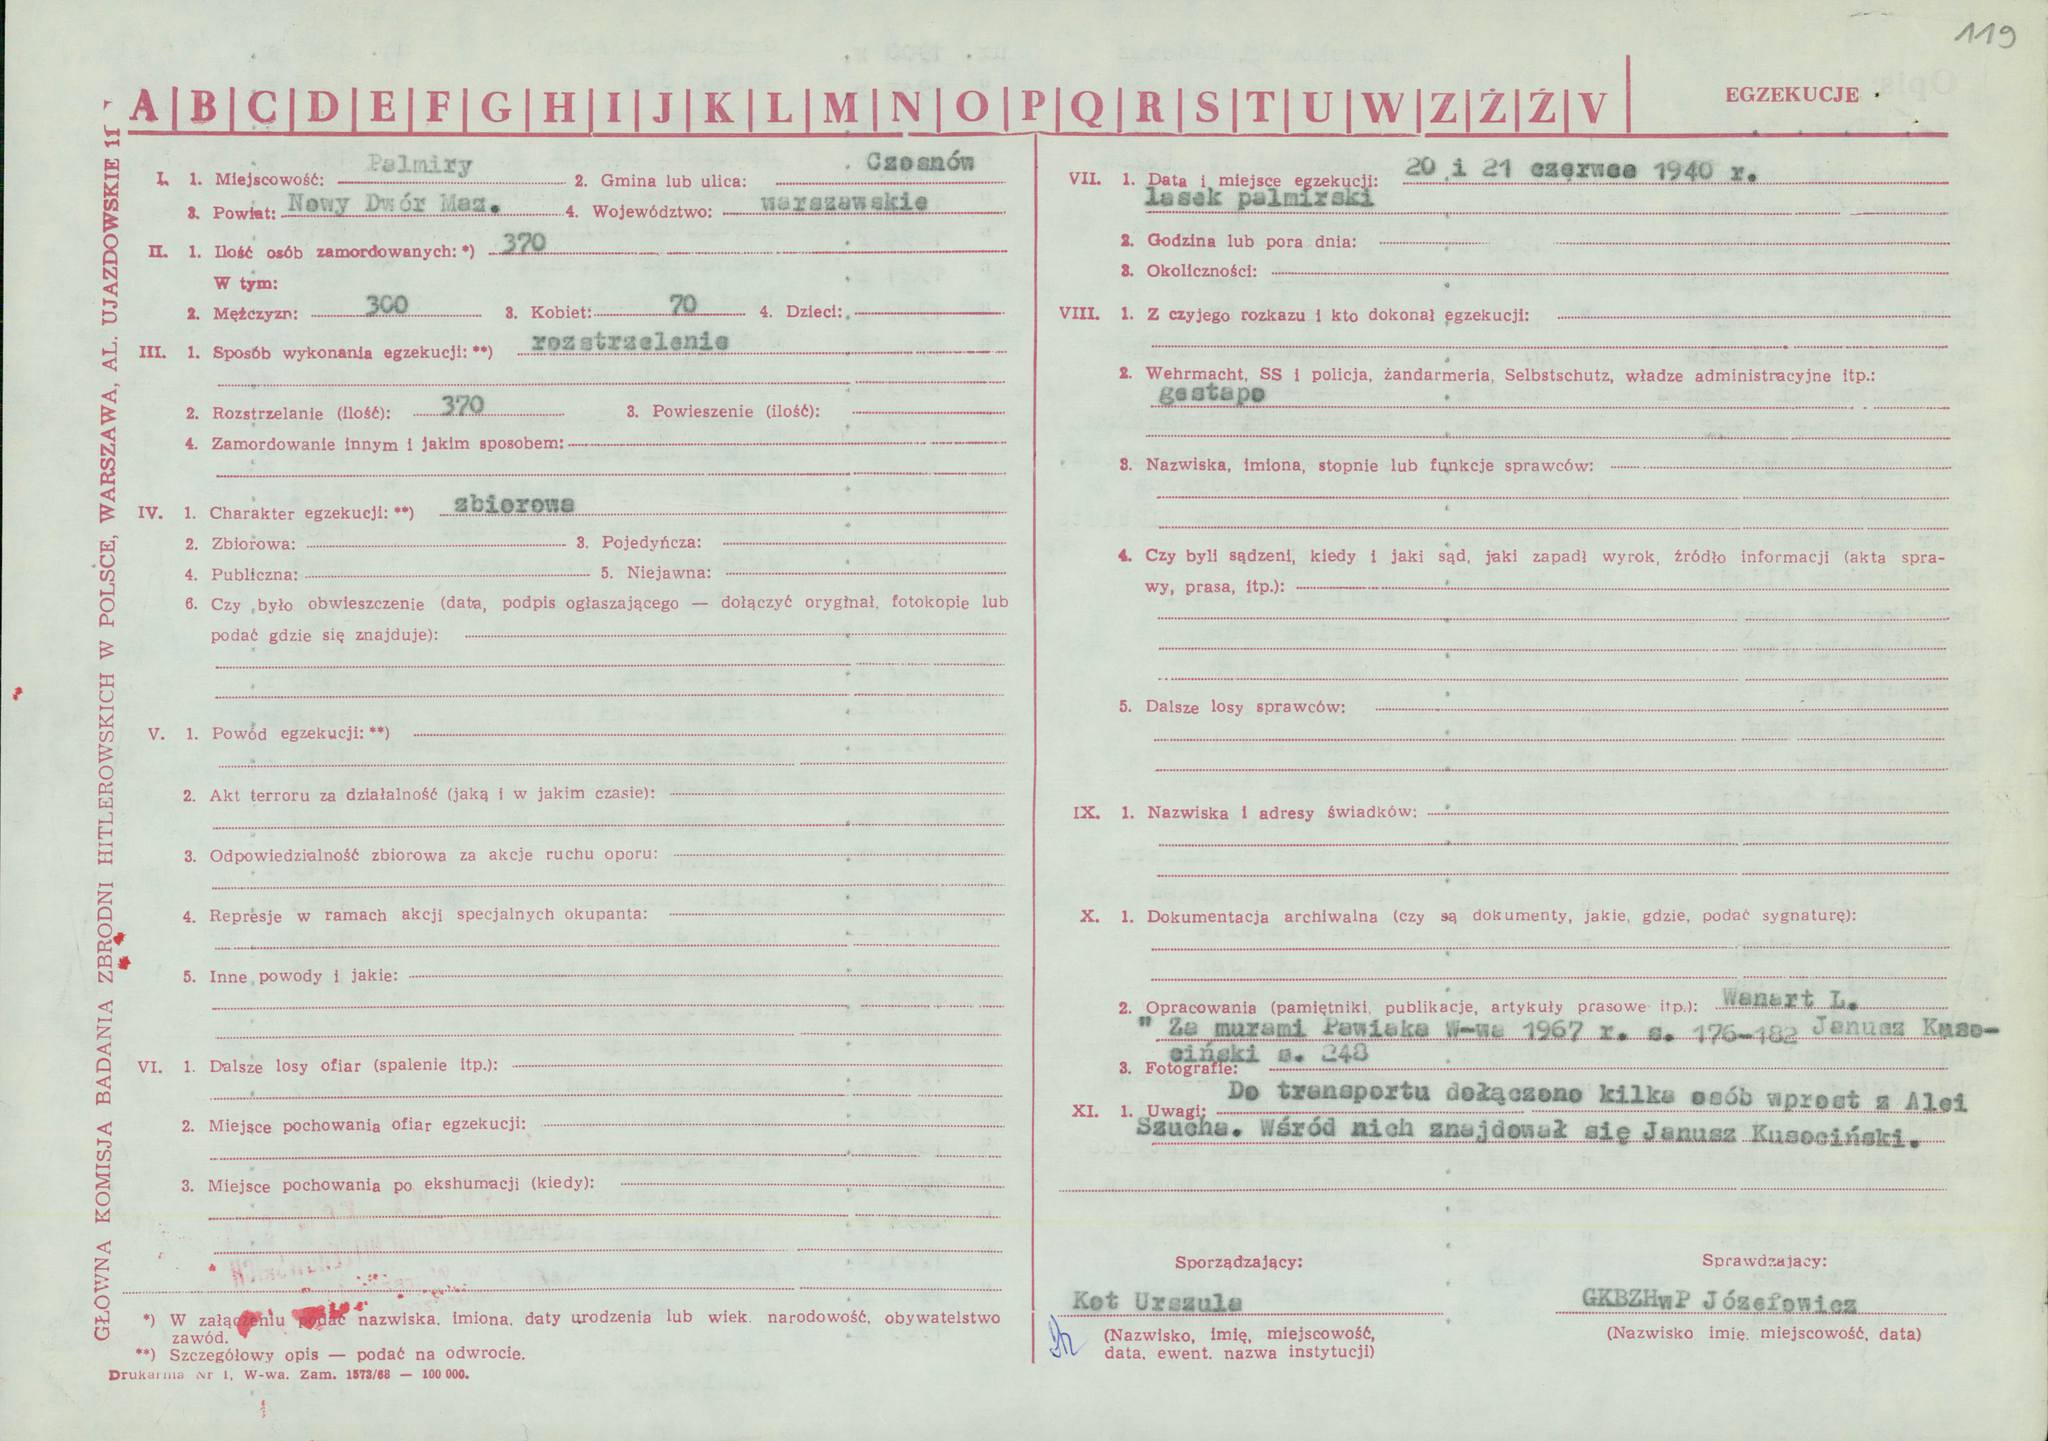 119
A|B|C|D|E|F|G|H|I|J|K|L|M|N|O|P|Q|R|S|T|U|W|Z|Ż|Ź|V| EGZEKUCJE
GŁÓWNA KOMISJA BADANIA ZBRODNI HITLEROWSKICH W POLSCE, WARSZAWA, AL. UJAZDOWSKIE 11
I. 1. Miejscowość: Palmiry 2. Gmina lub ulica: Czosnów
3. Powiat: Nowy Dwór Maz. 4. Województwo: warszawskie
II. 1. Ilość osób zamordowanych: *) 370
W tym:
2. Mężczyzn: 300 3. Kobiet: 70 4. Dzieci:
III. 1. Sposób wykonania egzekucji: **) rozstrzelanie
2. Rozstrzelanie (ilość): 370 3. Powieszenie (ilość):
4. Zamordowanie innym i jakim sposobem:
IV. 1. Charakter egzekucji: **) zbiorowa
2. Zbiorowa: 3. Pojedyńcza:
4. Publiczna: 5. Niejawna:
6. Czy było obwieszczenie (data, podpis ogłaszającego — dołączyć oryginał, fotokopie lub
podać gdzie się znajduje):
V. 1. Powód egzekucji: **)
2. Akt terroru za działalność (jaką i w jakim czasie):
3. Odpowiedzialność zbiorowa za akcje ruchu oporu:
4. Represje w ramach akcji specjalnych okupanta:
5. Inne powody i jakie:
VI. 1. Dalsze losy ofiar (spalenie itp.):
2. Miejsce pochowania ofiar egzekucji:
3. Miejsce pochowania po ekshumacji (kiedy):
*) W załączeniu podać nazwiska, imiona, daty urodzenia lub wiek, narodowość, obywatelstwo
zawód.
**) Szczegółowy opis — podać na odwrocie.
Drukarnia Nr 1, W-wa. Zam. 1573/68 — 100 000.
VII. 1. Data i miejsce egzekucji: 20 i 21 czerwca 1940 r.
lasek palmirski
2. Godzina lub pora dnia:
3. Okoliczności:
VIII. 1. Z czyjego rozkazu i kto dokonał egzekucji:
2. Wehrmacht, SS i policja, żandarmeria, Selbstschutz, władze administracyjne itp.:
gestapo
3. Nazwiska, imiona, stopnie lub funkcje sprawców:
4. Czy byli sądzeni, kiedy i jaki sąd, jaki zapadł wyrok, źródło informacji (akta spra-
wy, prasa, itp.):
5. Dalsze losy sprawców:
IX. 1. Nazwiska i adresy świadków:
X. 1. Dokumentacja archiwalna (czy są dokumenty, jakie, gdzie, podać sygnaturę):
2. Opracowania (pamiętniki, publikacje, artykuły prasowe itp.): Wanart L.
" Za murami Pawiaka W-wa 1967 r. s. 176-182 Janusz Kuso-
ciński s. 248
3. Fotografie:
XI. 1. Uwagi: Do transportu dołączono kilka osób wprost z Alei
Szucha. Wśród nich znajdował się Janusz Kusociński.
Sporządzający:
Kot Urszula
(Nazwisko, imię, miejscowość,
data, ewent. nazwa instytucji)
Sprawdzający:
GKBZHwP Józefowicz
(Nazwisko imię, miejscowość, data)